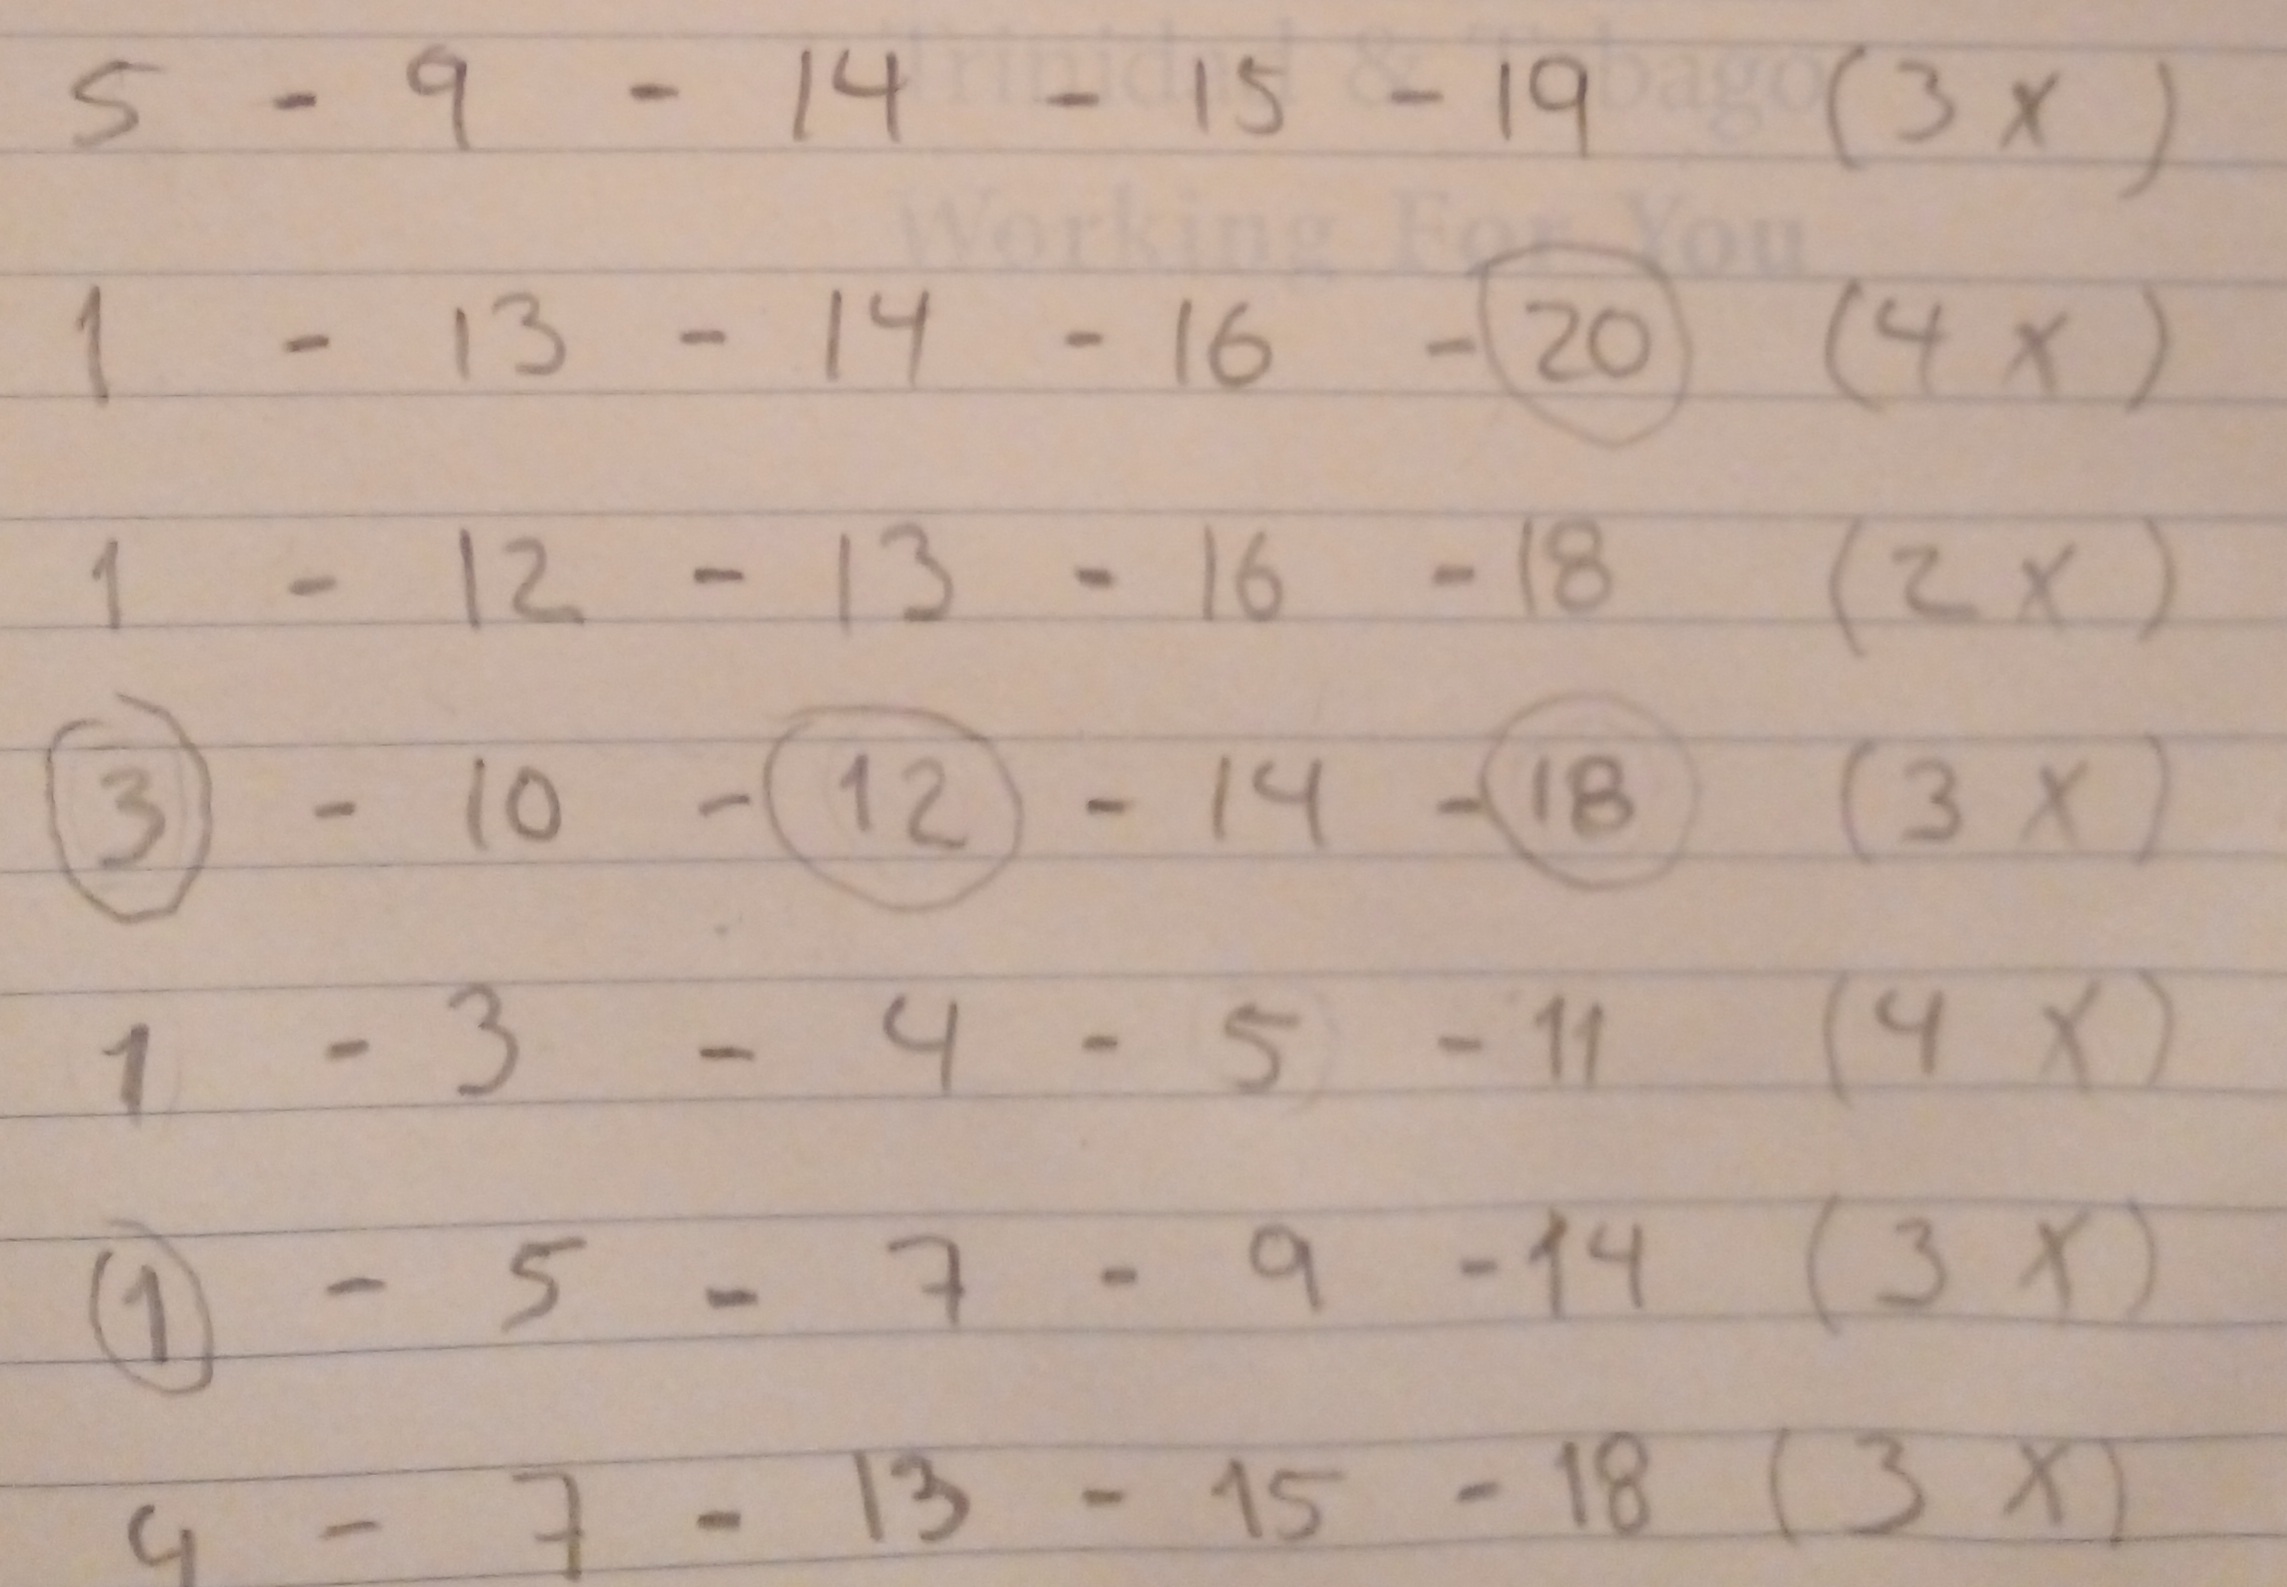 5 - 9 - 14 - 15 - 19 (3 x)
Trinidad & Tobago
Working For You
1 - 13 - 14 - 16 - 20 (4 x)
1 - 12 - 13 - 16 - 18 (2 x)
3 - 10 - 12 - 14 - 18 (3 x)
1 - 3 - 4 - 5 - 11 (4 x)
1 - 5 - 7 - 9 - 14 (3 x)
4 - 7 - 13 - 15 - 18 (3 x)